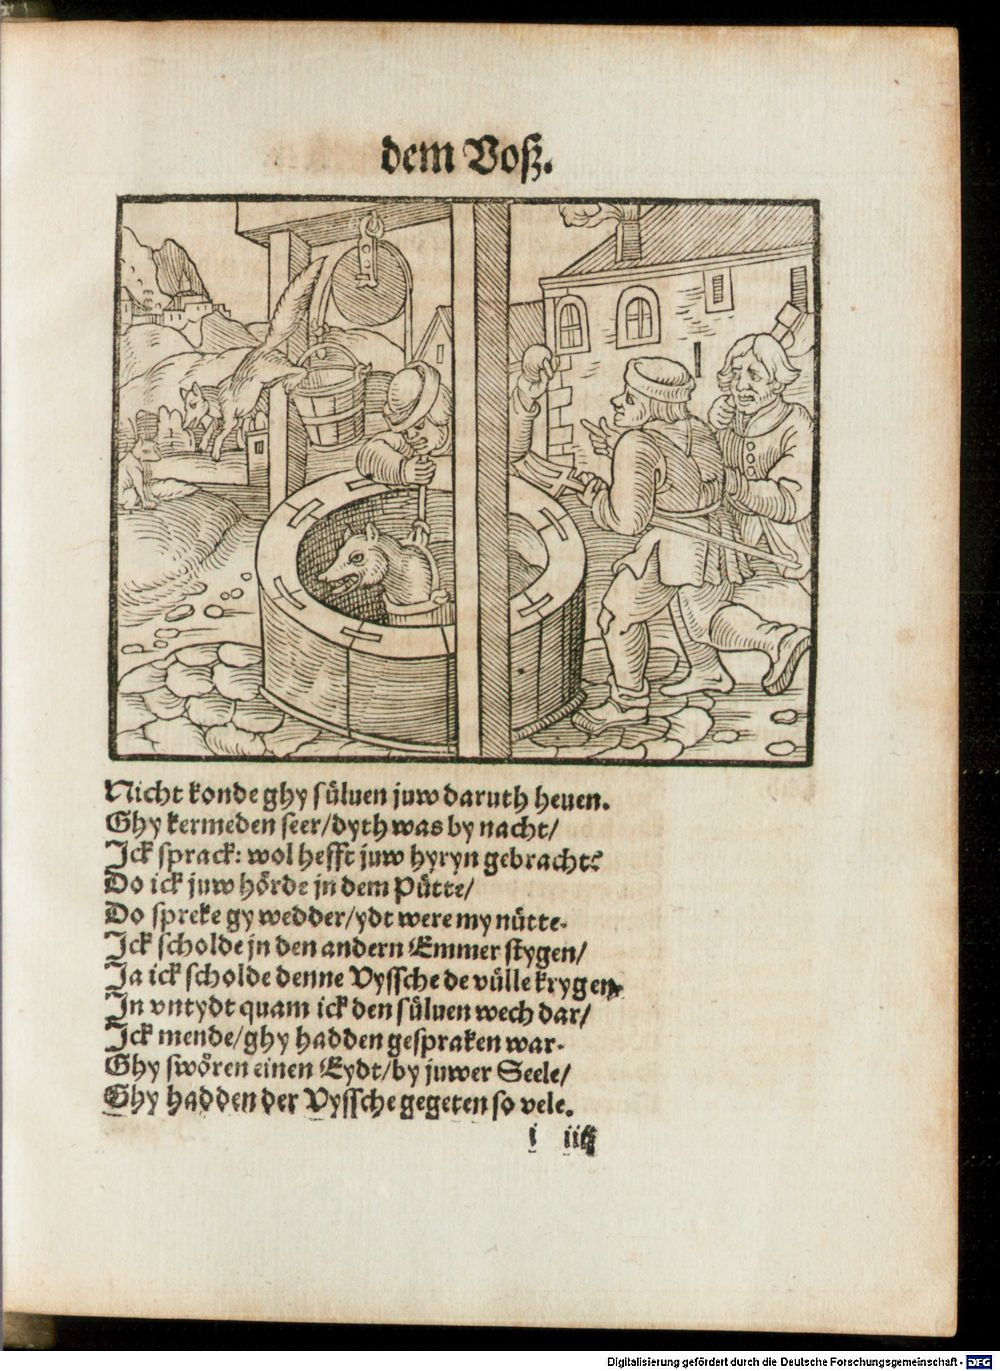 dem Voß.
Nicht konde ghy suͤluen juw daruth heuen.
Ghy kermeden seer/dyth was by nacht/
Jck sprack: wol hefft juw hyryn gebracht?
Do ick juw hoͤrde jn dem Puͤtte/
Do spreke gy wedder/ydt were my nuͤtte.
Jck scholde jn den andern Emmer stygen/
Ja ick scholde denne Vyssche de vuͤlle krygen
Jn vntydt quam ick den suͤluen wech dar/
Jck mende/ghy hadden gespraken war.
Ghy swoͤren einen Eydt/by juwer Seele/
Ghy hadden der Vyssche gegeten so vele.
i
Digitalisierung gefördert durch die Deutsche Forschungsgemeinschaft - DFG